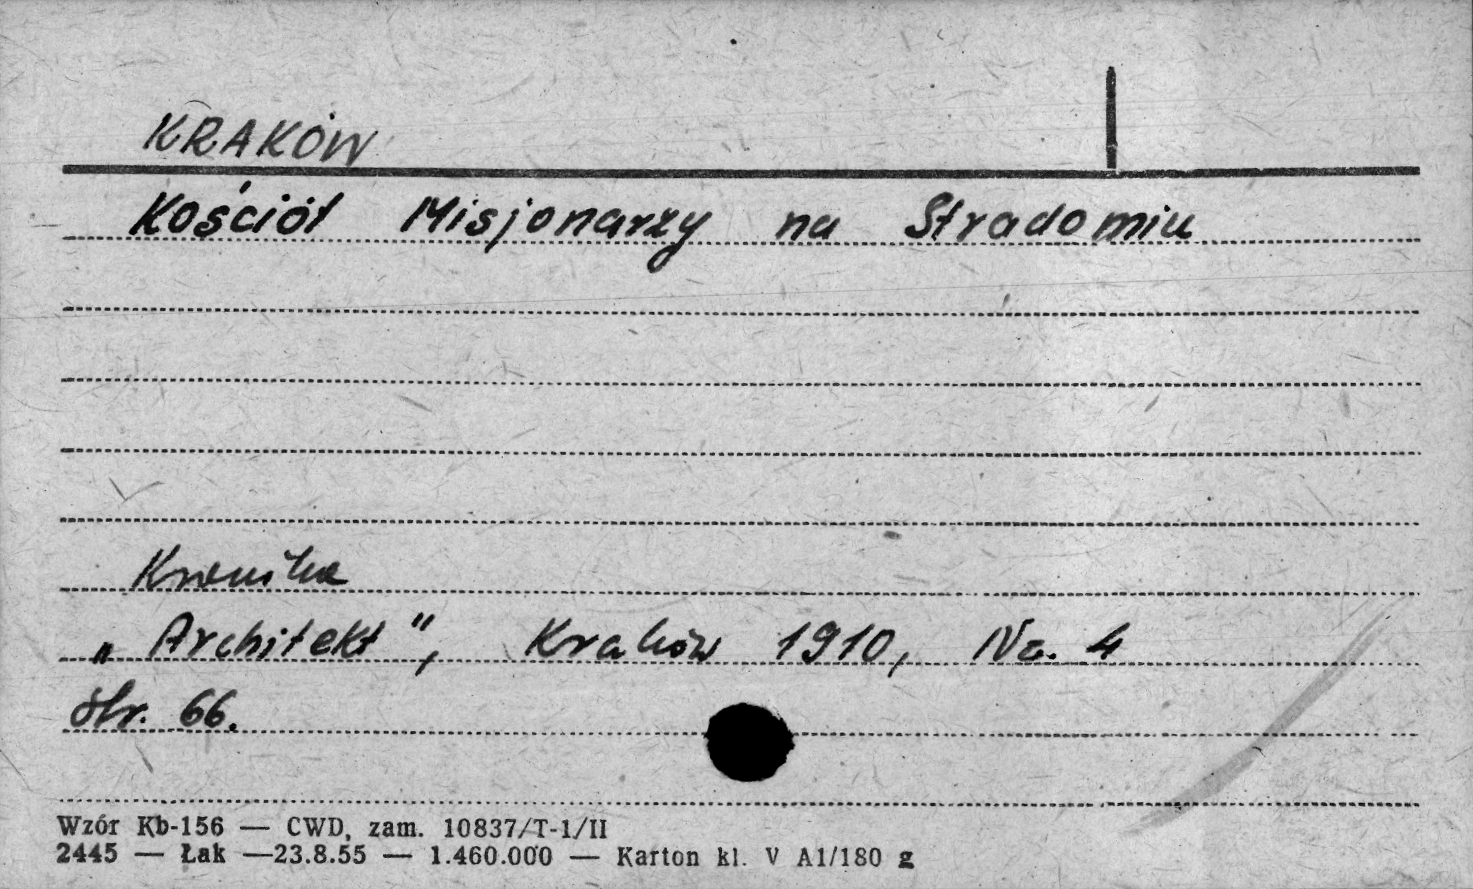 KRAKÓW
Kościół Misjonarzy na Stradomiu
Kronika
„Architekt", Kraków 1910, Nr. 4
str. 66.
Wzór Kb-156 — CWD, zam. 10837/T-1/II
2445 — Łak —23.8.55 — 1.460.000 — Karton kl. V A1/180 g